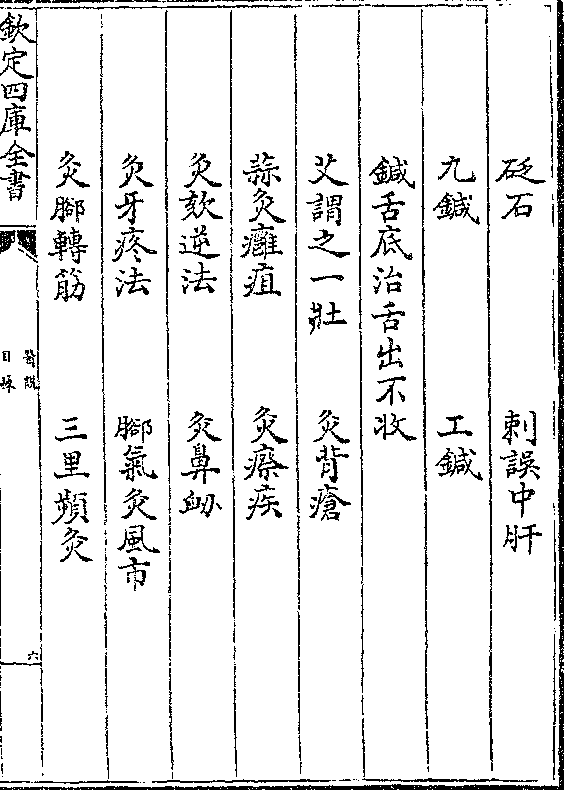 砭石 刺誤中肝
九鍼 工鍼
鍼舌底治舌出不收
艾謂之一壯 灸背瘡
蒜灸癰疽 灸瘵疾
灸欬逆法 灸鼻衄
灸牙疼法 腳氣灸風市
灸腳轉筋 三里頻灸
欽定四庫全書
醫說
目錄
六